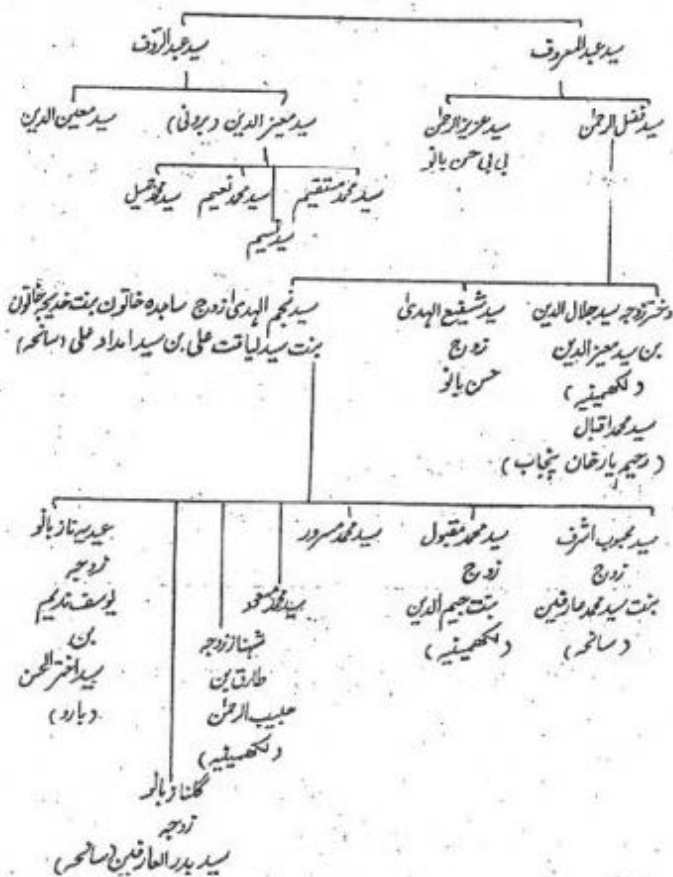 سید عبدالمعروف
سید عبدالرؤف
سید فضل الرحمٰن
سید عزیز الرحمٰن
بی بی حسن بانو
سید معیزالدین (برونی)
سید معین الدین
سید محمد مستقیم
سید محمد نعیم
سید محمد جمیل
سید نسیم
دختر زوجہ سید جلال الدین
بن سید معیزالدین
(لکھمینیہ)
سید محمد اقبال
(رحیم یارخان پنجاب)
سید شفیع الہدیٰ
زوج
حسن بانو
سید نجم الہدیٰ زوج ساجدہ خاتون بنت خدیجہ خاتون
بنت سید لیاقت علی بن سید امداد علی (سانحہ)
سید محبوب اشرف
زوج
بنت سید محمد عارفین
(سانحہ)
سید محمد مقبول
زوج
بنت جیم الدین
(لکھمینیہ)
سید محمد سرور
سید محمد مسعود
شہناز زوجہ
طارق بن
حبیب الرحمٰن
(لکھمینیہ)
گلناز بانو
زوجہ
سید بدر العارفین (سانحہ)
ناز بانو
زوجہ
یوسف ندیم
بن
سید اختر الحسن
(بارو)